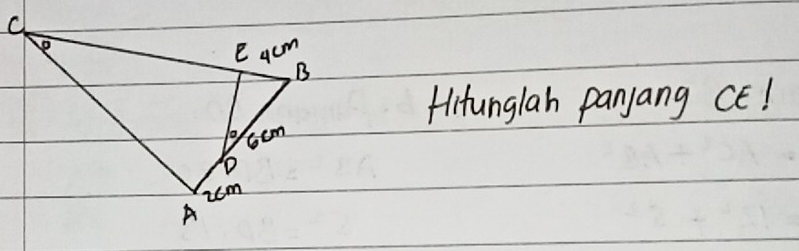 C
E 4cm
B
Hitunglah panjang CE!
6cm
D
2cm
A